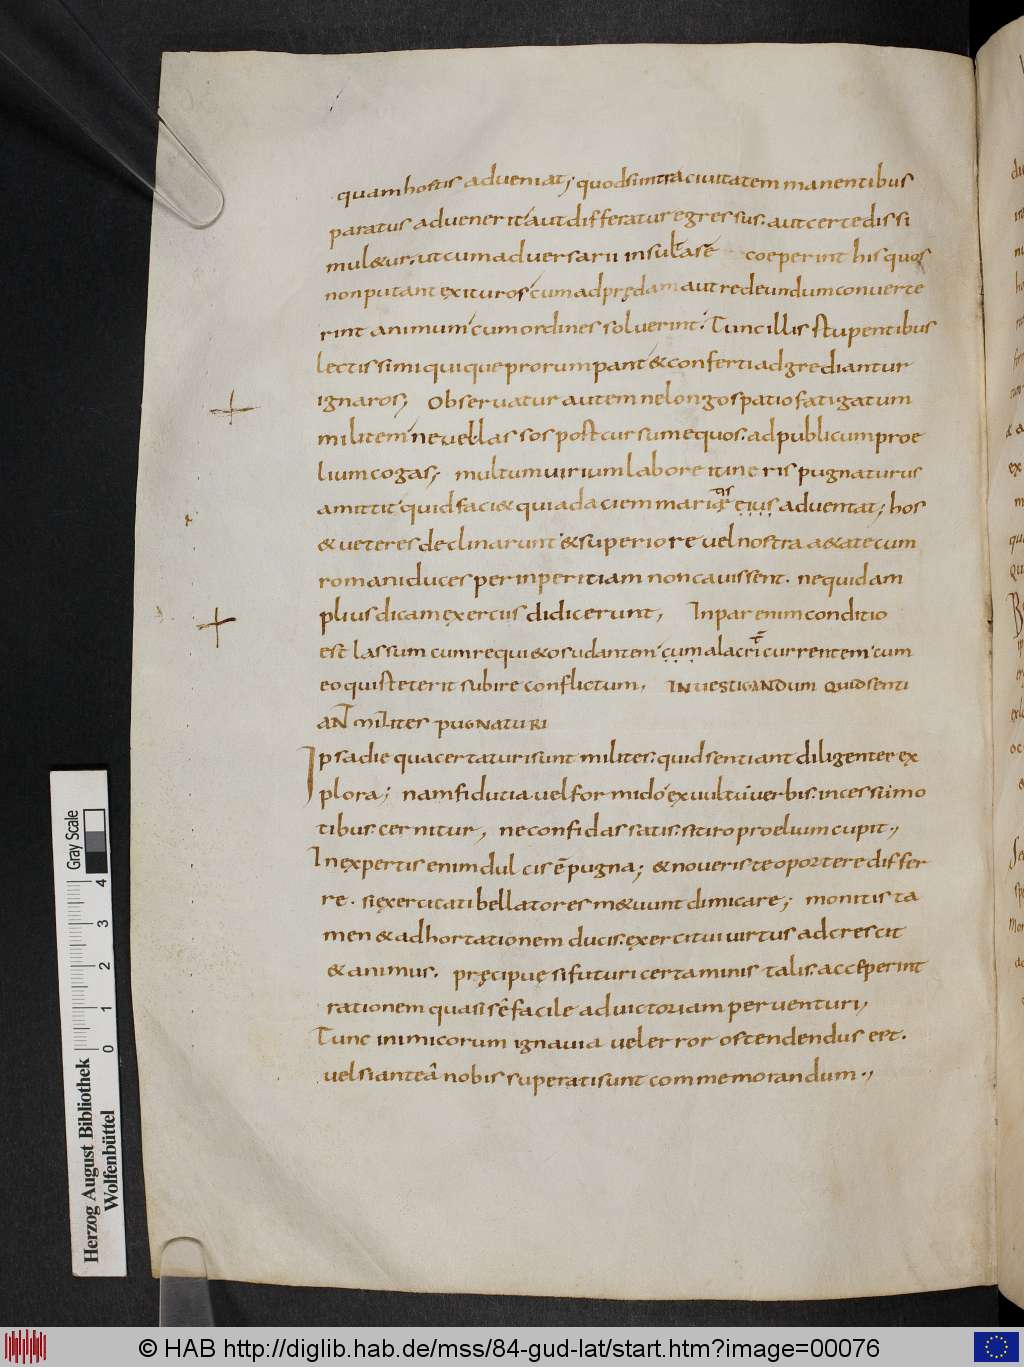 quam hostis adveniat; quod si intra civitatem manentibus
paratus advenerit aut differatur egressus. aut certe dissi
mul&ur. ut cum adversarii insultasē coeperint his quos
non putant exituros cum ad prędam aut redeundum converte
rint animum cum ordines solverint. Tunc illis stupentibus
lectissimi quique prorumpant & conferti adgrediantur
ignaros; Observatur autem ne longo spatio fatigatum
militem ne vel lassos post cursum equos. ad publicum proe
lium cogas; multum virium labore itineris pugnaturus
amittit quid faci& qui ad aciem adventat; hos
& veteres declinarunt & superiore vel nostra a&ate cum
romani duces per inperitiam non cavissent. ne quid am
plius dicam exercitus didicerunt, Inpar enim conditio
est lassum cum requi&o sudantem cum alacri currentem cum
eo qui steterit subire conflictum. INVESTIGANDUM QUID SENTI
AN̄ MILITES PUGNATURI
Ipsa die qua certaturi sunt milites. quid sentiant diligenter ex
plora; nam fidutia vel formido ex vultū verbis. incessū mo
tibus. cernitur, ne confidas satis. si tiro proelium cupit.,
Inexpertis enim dulcis ē pugna; & noveris te oportere differ
re. si exercitati bellatores m&uunt dimicare; monitis ta
men & adhortatione
m ducis. exercitui virtus adcrescit
& animus. pręcipuę si futuri certaminis talis. acceperint
rationem quasi sē facile ad victoriam perventuri,
Tunc inimicorum ignavia vel error ostendendus est.
vel si anteā nobis superati sunt commemorandum.,
Herzog August Bibliothek
Wolfenbüttel
0 1 2 3 4
Gray Scale
© HAB http://diglib.hab.de/mss/84-gud-lat/start.htm?image=00076